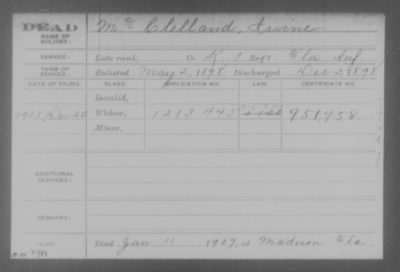 DEAD
NAME OF SOLDIER:
Mc Clelland, Irvine
SERVICE:
Late rank, Co K, 1 Regt Fla Inf
TERM OF SERVICE:
Enlisted May 2, 1898 Discharged Dec 3, 1898
DATE OF FILING. CLASS. APPLICATION NO. LAW. CERTIFICATE NO.
Invalid,
Widow, 1213445 951,958
Minor,
ADDITIONAL SERVICES:
REMARKS:
Died Jan 11, 1907, at Madison Fla